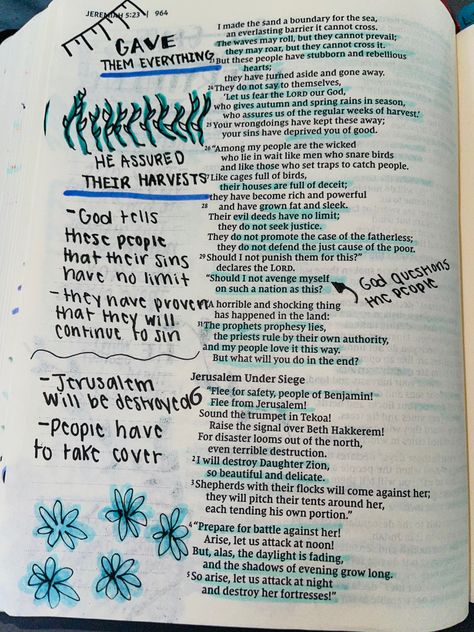 JEREMIAH 5:23 | 964
GAVE
THEM EVERYTHING
HE ASSURED
THEIR HARVESTS
- God tells
these people
that their sins
have no limit
- they have proven
that they will
continue to sin
- Jerusalem
will be destroyed
- People have
to take cover
I made the sand a boundary for the sea,
an everlasting barrier it cannot cross.
The waves may roll, but they cannot prevail;
they may roar, but they cannot cross it.
23 But these people have stubborn and rebellious
hearts;
they have turned aside and gone away.
24 They do not say to themselves,
'Let us fear the LORD our God,
who gives autumn and spring rains in season,
who assures us of the regular weeks of harvest.'
25 Your wrongdoings have kept these away;
your sins have deprived you of good.
26 "Among my people are the wicked
who lie in wait like men who snare birds
and like those who set traps to catch people.
27 Like cages full of birds,
their houses are full of deceit;
they have become rich and powerful
28 and have grown fat and sleek.
Their evil deeds have no limit;
they do not seek justice.
They do not promote the case of the fatherless;
they do not defend the just cause of the poor.
29 Should I not punish them for this?"
declares the LORD.
"Should I not avenge myself
on such a nation as this?
God questions
the people
30 "A horrible and shocking thing
has happened in the land:
31 The prophets prophesy lies,
the priests rule by their own authority,
and my people love it this way.
But what will you do in the end?
Jerusalem Under Siege
6 "Flee for safety, people of Benjamin!
Flee from Jerusalem!
Sound the trumpet in Tekoa!
Raise the signal over Beth Hakkerem!
For disaster looms out of the north,
even terrible destruction.
2 I will destroy Daughter Zion,
so beautiful and delicate.
3 Shepherds with their flocks will come against her;
they will pitch their tents around her,
each tending his own portion."
4 "Prepare for battle against her!
Arise, let us attack at noon!
But, alas, the daylight is fading,
and the shadows of evening grow long.
5 So arise, let us attack at night
and destroy her fortresses!"